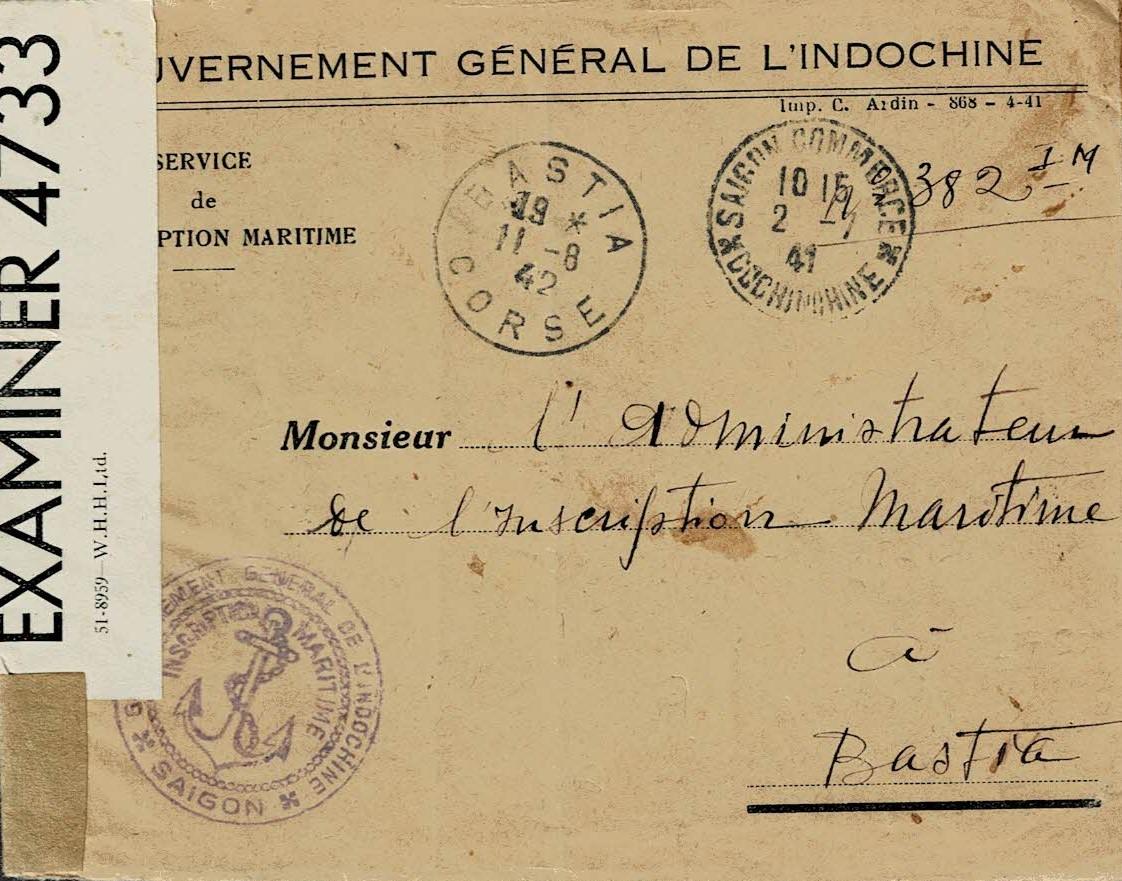 EXAMINER 4733
51-8959—W.H.H.Ltd.
UVERNEMENT GÉNÉRAL DE L'INDOCHINE
Imp. C. Ardin - 868 - 4-41
SERVICE
de
PTION MARITIME
BASTIA
19 *
11 -8
42
CORSE
SAIGON COMMERCE
10 15
2 -7
41
* COCHINCHINE *
382 IM
Monsieur l'Administrateur
de l'Inscription Maritime
à
Bastia
EMENT GENERAL DE L'INDOCHINE
INSCRIPTION MARITIME
* SAIGON *